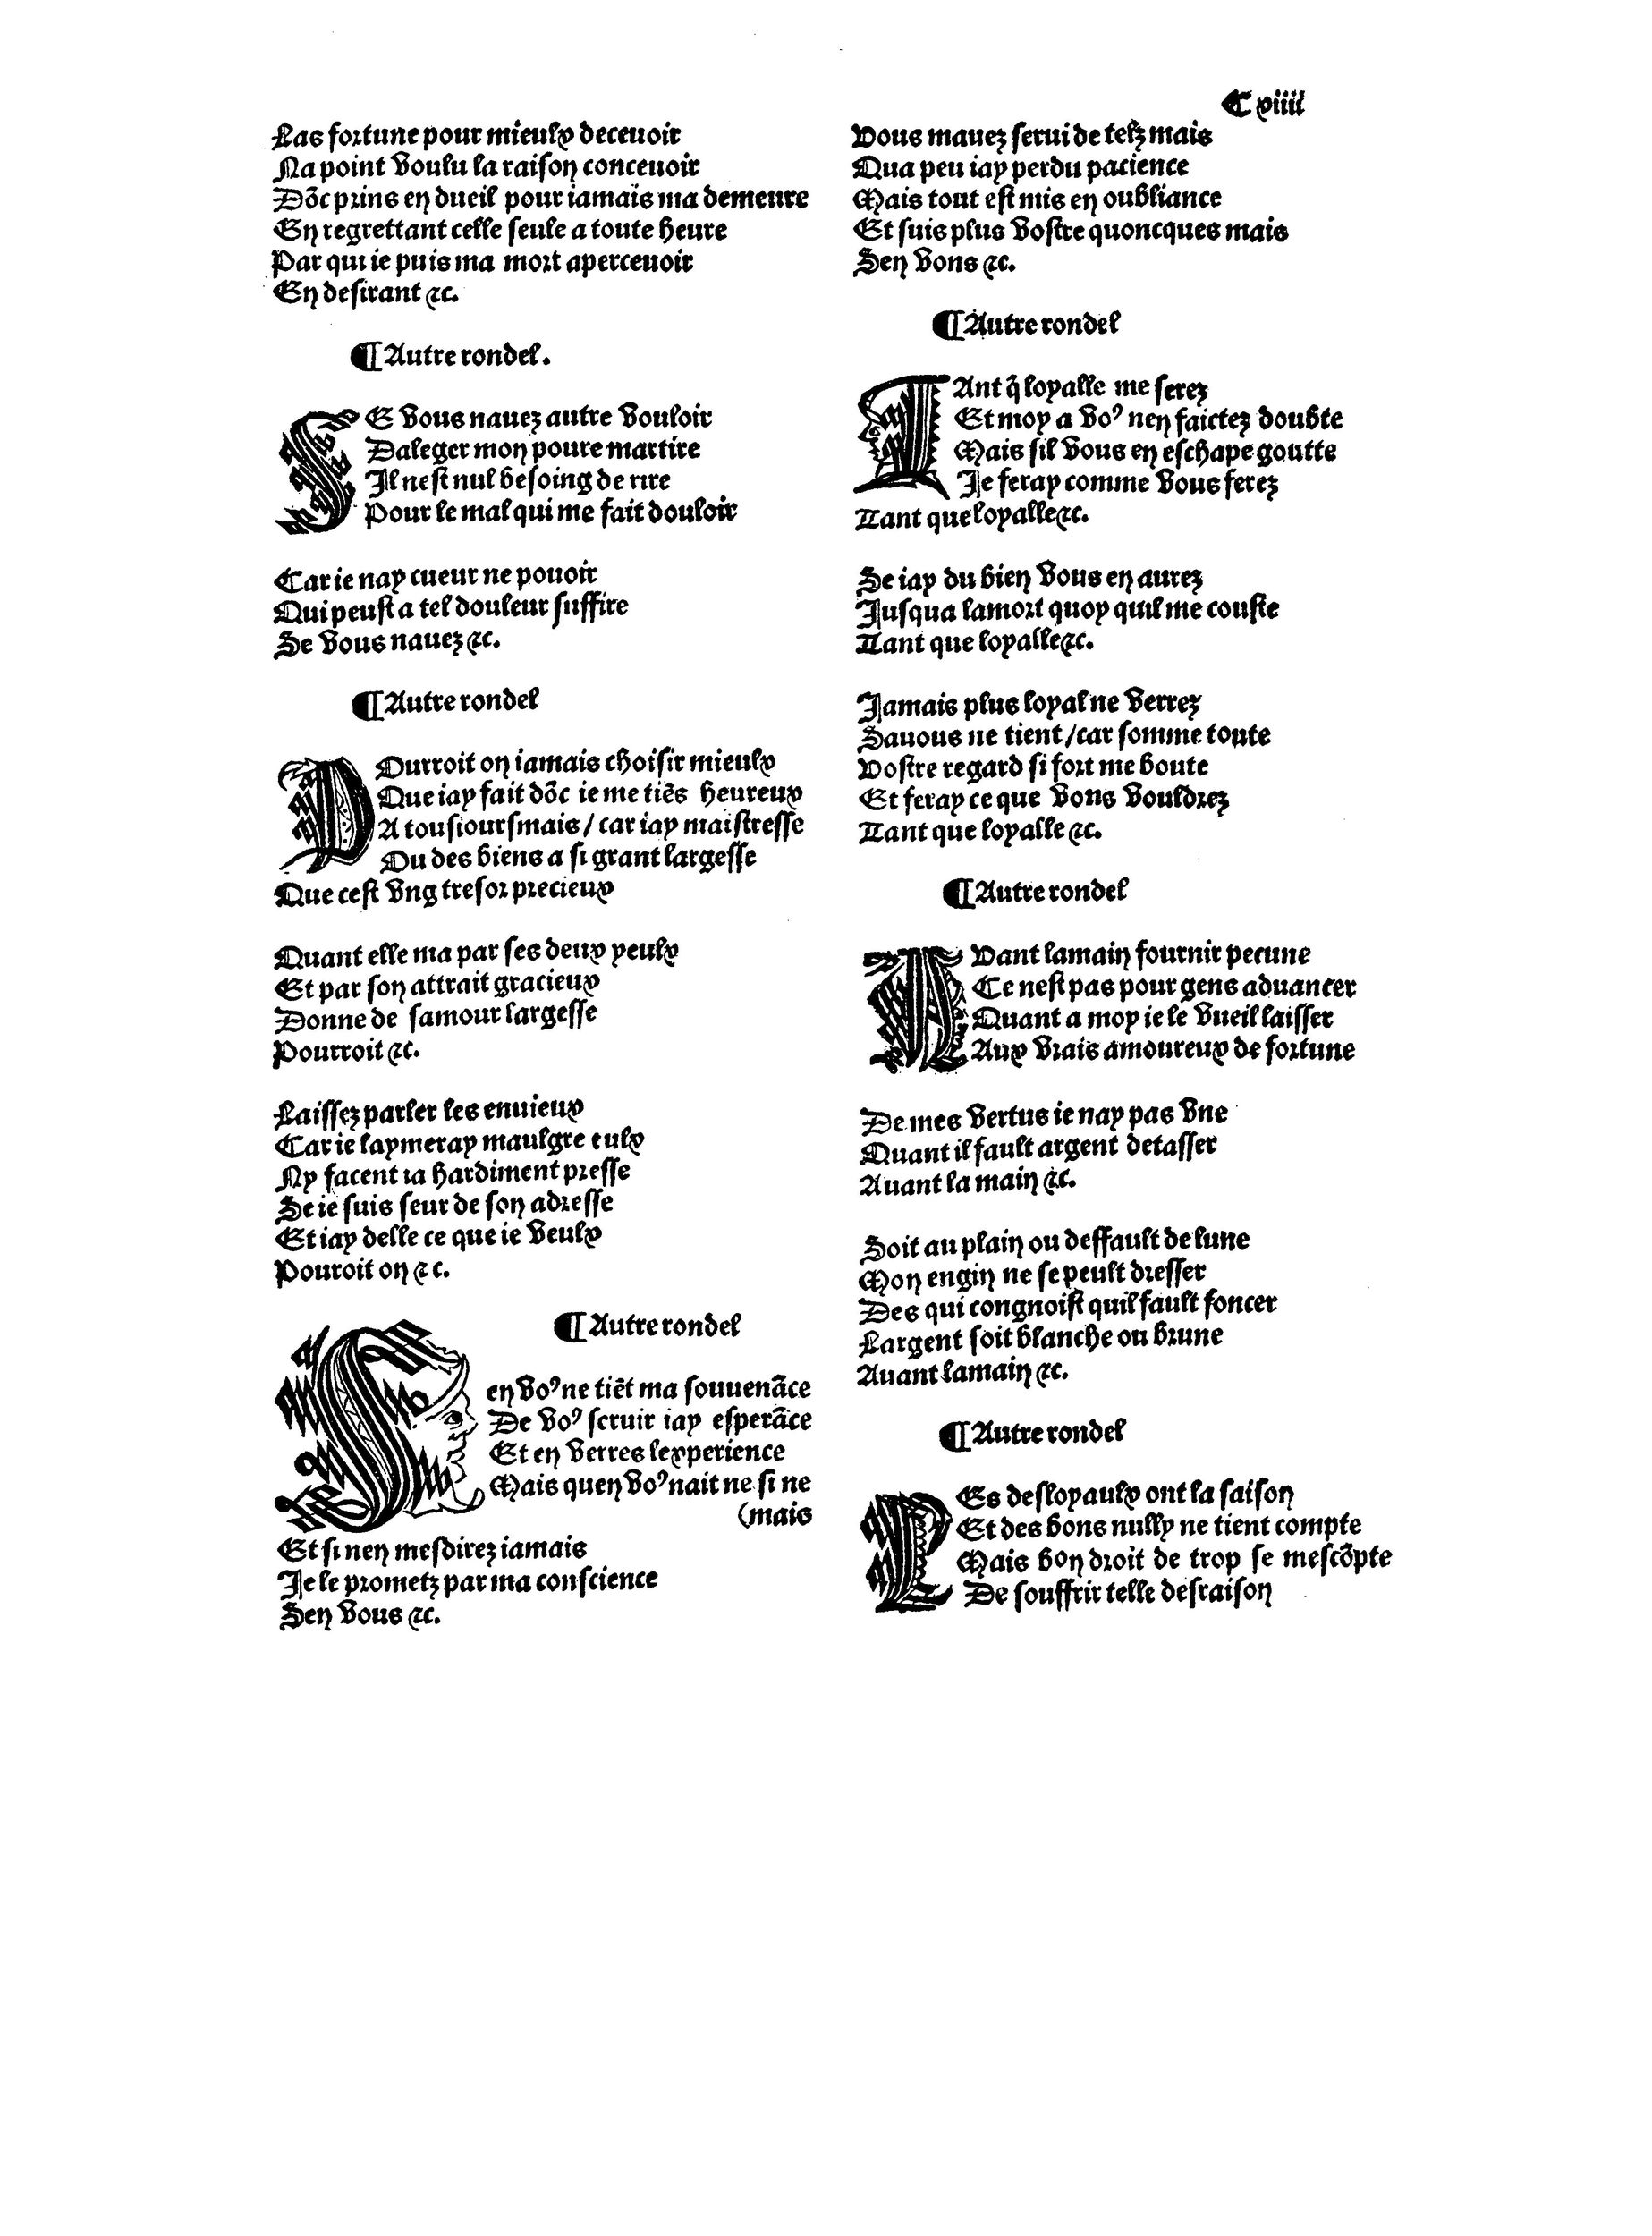 C viiii
Las fortune pour mieulx deceuoir
Na point voulu la raison conceuoir
Dõc prins en dueil pour iamais ma demeure
En regrettant celle seule a toute heure
Par qui ie puis ma mort aperceuoir
En desirant &c.
¶ Autre rondel.
SE vous nauez autre vouloir
Daleger mon poure martire
Il nest nul besoing de rire
Pour le mal qui me fait douloir
Car ie nay cueur ne pouoir
Qui peust a tel douleur suffire
Se vous nauez &c.
¶ Autre rondel
POurroit on iamais choisir mieulx
Que iay fait dõc ie me tiẽs heureux
A tousioursmais / car iay maistresse
Ou des biens a si grant largesse
Que cest vng tresor precieux
Quant elle ma par ses deux yeulx
Et par son attrait gracieux
Donne de samour largesse
Pourroit &c.
Laissez parler les enuieux
Car ie laymeray maulgre eulx
Ny facent ia hardiment presse
Se ie suis seur de son adresse
Et iay delle ce que ie veulx
Pouroit on &c.
¶ Autre rondel
Sen voꝰ ne tiẽt ma souuenãce
De voꝰ seruir iay esperãce
Et en verres lexperience
Mais quen voꝰ nait ne si ne
(mais
Et si nen mesdirez iamais
Je le prometz par ma conscience
Sen vous &c.
Vous mauez serui de telz mais
Qua peu iay perdu pacience
Mais tout est mis en oubliance
Et suis plus vostre quoncques mais
Sen vons &c.
¶ Autre rondel
TAnt q̃ loyalle me serez
Et moy a voꝰ nen faictez doubte
Mais sil vous en eschape goutte
Je feray comme vous ferez
Tant que loyalle &c.
Se iay du bien vous en aurez
Jusqua lamort quoy quil me couste
Tant que loyalle &c.
Jamais plus loyal ne verrez
Sauous ne tient / car somme toute
Vostre regard si fort me boute
Et feray ce que vons vouldrez
Tant que loyalle &c.
¶ Autre rondel
AVant lamain fournir pecune
Ce nest pas pour gens aduancer
Quant a moy ie le vueil laisser
Aux vrais amoureux de fortune
De mes vertus ie nay pas vne
Quant il fault argent detasser
Auant la main &c.
Soit au plain ou deffault de lune
Mon engin ne se peult dresser
Des qui congnoist quil fault foncer
Largent soit blanche ou brune
Auant lamain &c.
¶ Autre rondel
LEs desloyaulx ont la saison
Et des bons nully ne tient compte
Mais bon droit de trop se mescõpte
De souffrir telle desraison